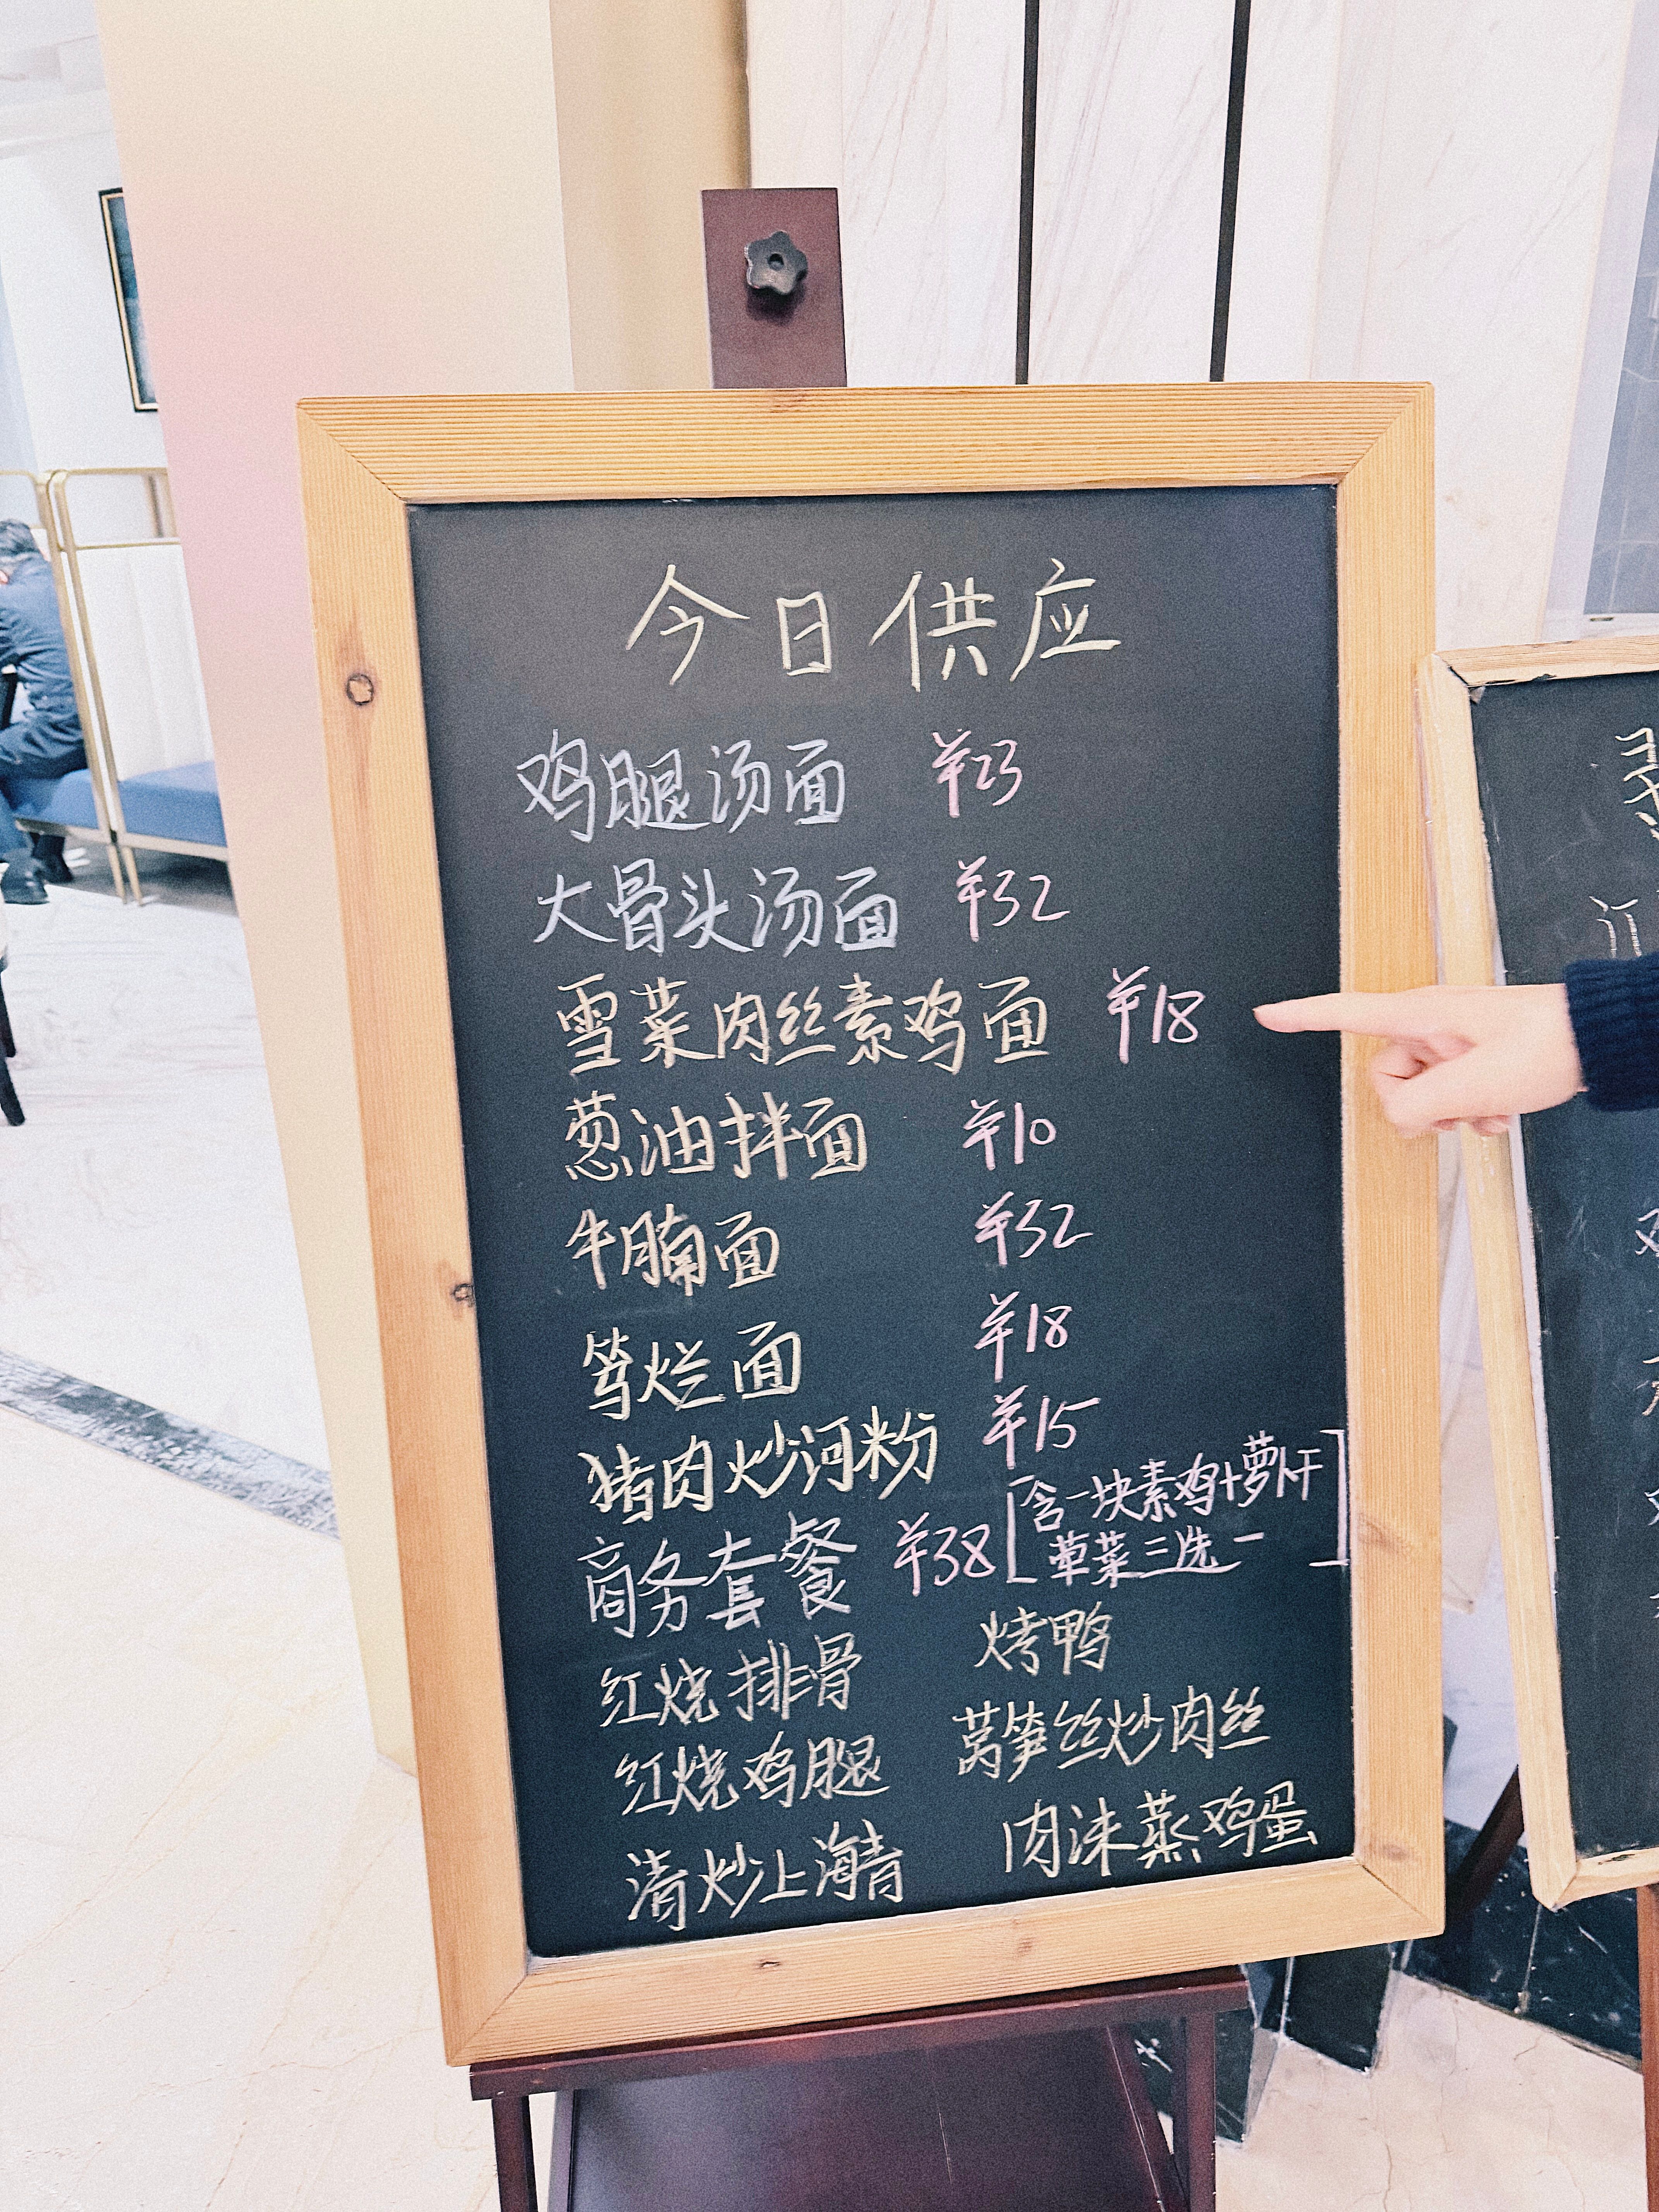 今日供应
鸡腿汤面 ¥23
大骨头汤面 ¥32
雪菜肉丝素鸡面 ¥18
葱油拌面 ¥10
牛腩面 ¥32
笃烂面 ¥18
猪肉炒河粉 ¥15
商务套餐 ¥38 [含一块素鸡+萝卜干
荤菜三选一]
红烧排骨 烤鸭
红烧鸡腿 莴笋丝炒肉丝
清炒上海青 肉沫蒸鸡蛋